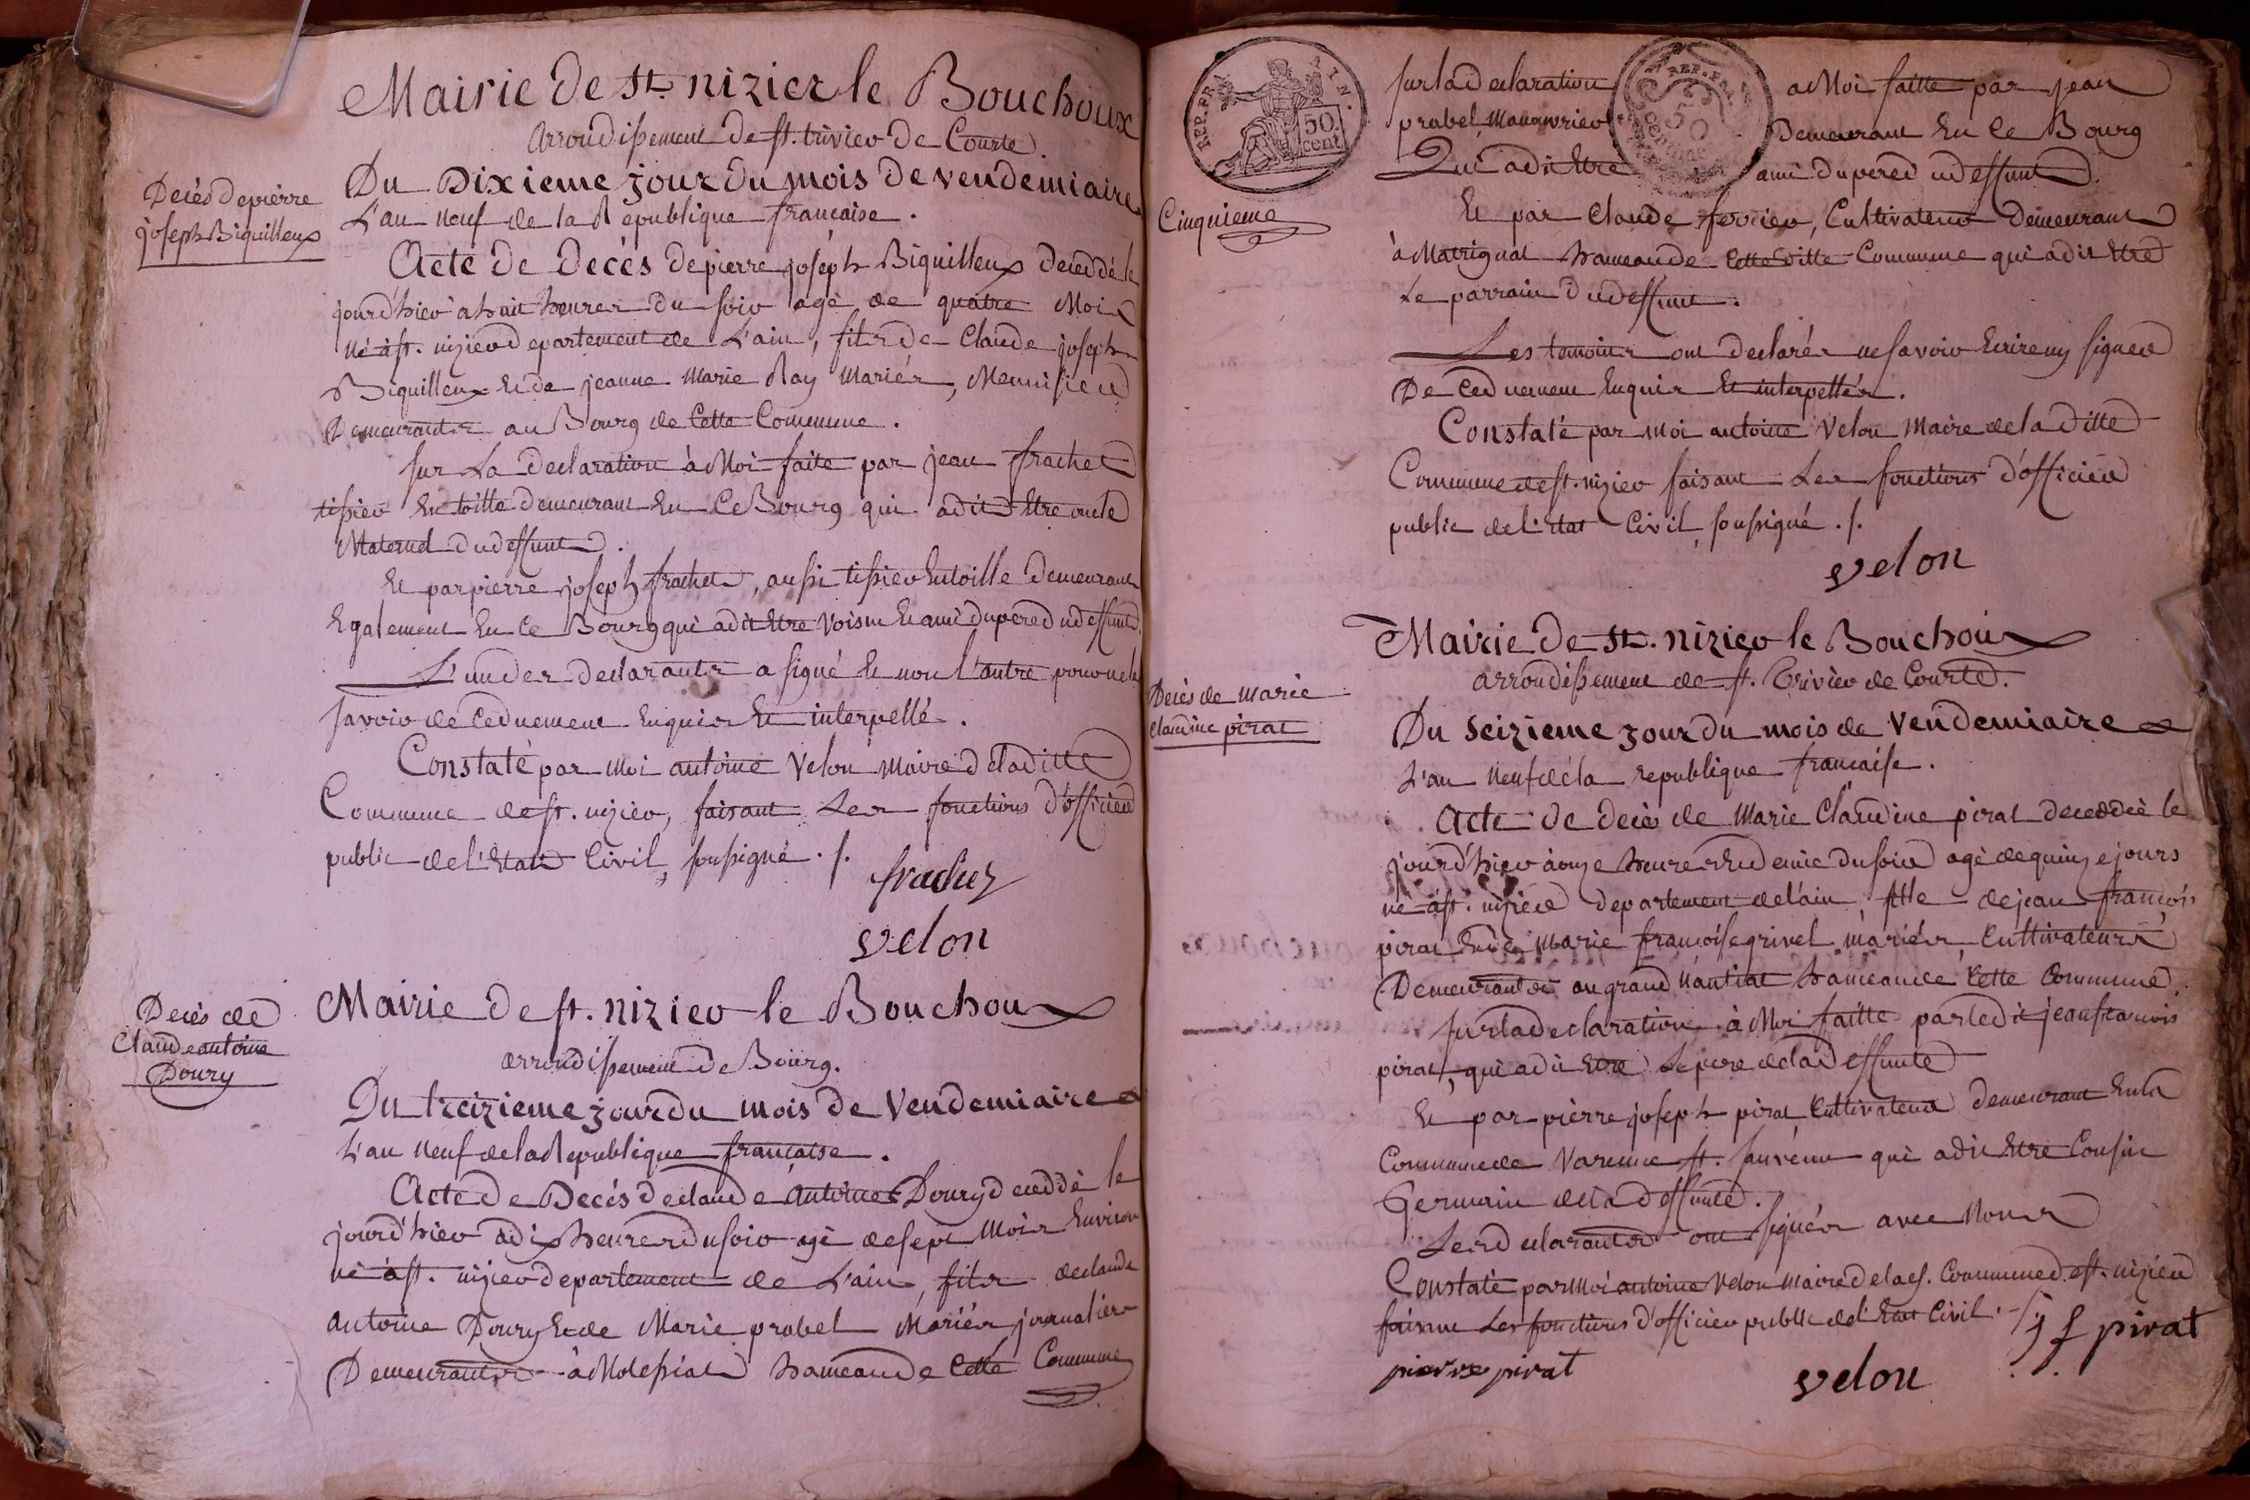 Mairie de st. nizier le Bouchoux
arrondissement de st. trivier de Courte.
Decès de pierre
joseph Biquilleux
Du Dixieme jour du mois de vendemiaire
L'an neuf de la Republique francaise.
Acte de Decès de pierre joséph Biquilleux deceddé le
jourd'hier à huit heures du soir agé de quatre Mois
né à st. nizier departement de L'ain, fils de Claude joseph
Biquilleux et de jeanne Marie Ray Mariés, Menuisier
Demeurants au Bourg de Cette Commune.
sur La declaration à Moi faite par jean frachet
tissier en toille demeurant en Ce Bourg qui a dit Etre oncle
Maternel du deffunt.
Et par pierre joseph frachet, aussi tissier en toille demeurant
Egalement En Ce Bourg qui a dit Etre Voisin et ami du pere du deffunt.
L'un des declarants a signé et non l'autre pour ne le
savoir de Ce duement Enquis Et interpellé.
Constaté par Moi antoine Velon Maire de la ditte
Commune de st. nizier, faisant Les fonctions d'officier
public de l'Etat Civil, soussigné ./.
frachet
velon
Decès de
Claude antoine
Doury
Mairie de st. nizier le Bouchoux
arrondissement de Bourg.
Du treizieme jour du mois de Vendemiaire
L'an neuf de la Republique francaise.
Acte de Decés de claude antoine Doury deceddé le
jourd'hier à dix heures du soir agé de sept Mois Environ
né à st. nizier departement de L'ain, fils de claude
antoine Doury et de Marie prabel Mariés journaliers
Demeurants à Molessiat hameau de Cette Commune
REP. FRA. 50 cent. TIN.
REP. FRA. 50
Cinquieme
sur la declaration a Moi faitte par jean
prabel Manouvrier Demeurant En Ce Bourg
Qui a dit Etre ami du pere du deffunt.
Et par Claude ferrier, Cultivateur Demeurant
à Matrignat hameau de Cette ditte Commune qui a dit Etre
Le parrain du deffunt.
Les temoins ont declarés ne savoir Ecrire ny signer
De Ce duement Enquis Et interpellés.
Constaté par Moi antoine Velon Maire de la ditte
Commune de st. nizier faisant Les fonctions d'officier
public de l'etat Civil, soussigné ./.
velon
Decès de marie
claudine pirat
Mairie de st. nizier le Bouchoux
arrondissement de st. Trivier de Courte.
Du seizieme jour du mois de Vendemiaire
L'an neuf de la republique francaise.
Acte de decès de Marie Claudine pirat deceddée le
jourd'hier à onze heures et demie du soir agé de quinze jours
né à st. nizier departement de l'ain, fille de jean françois
pirat Et de Marie françoise grivel mariés, Cultivateurs
Demeurants au grand Nantiat hameau de Cette Commune.
sur la declaration à Moi faitte par le dit jean francois
pirat, qui a dit Etre Le pere de la deffunte
Et par pierre joseph pirat Cultivateur demeurant En la
Commune de Varenne st. sauveur qui a dit Etre Cousin
Germain de la deffunte.
Les declarants ont signés avec Nous
Constaté par Moi antoine Velon Maire de la d. Commune de st. nizier
faisant Les fonctions d'officier public de l'Etat Civil ./.
j f pirat
pierre pirat
velon